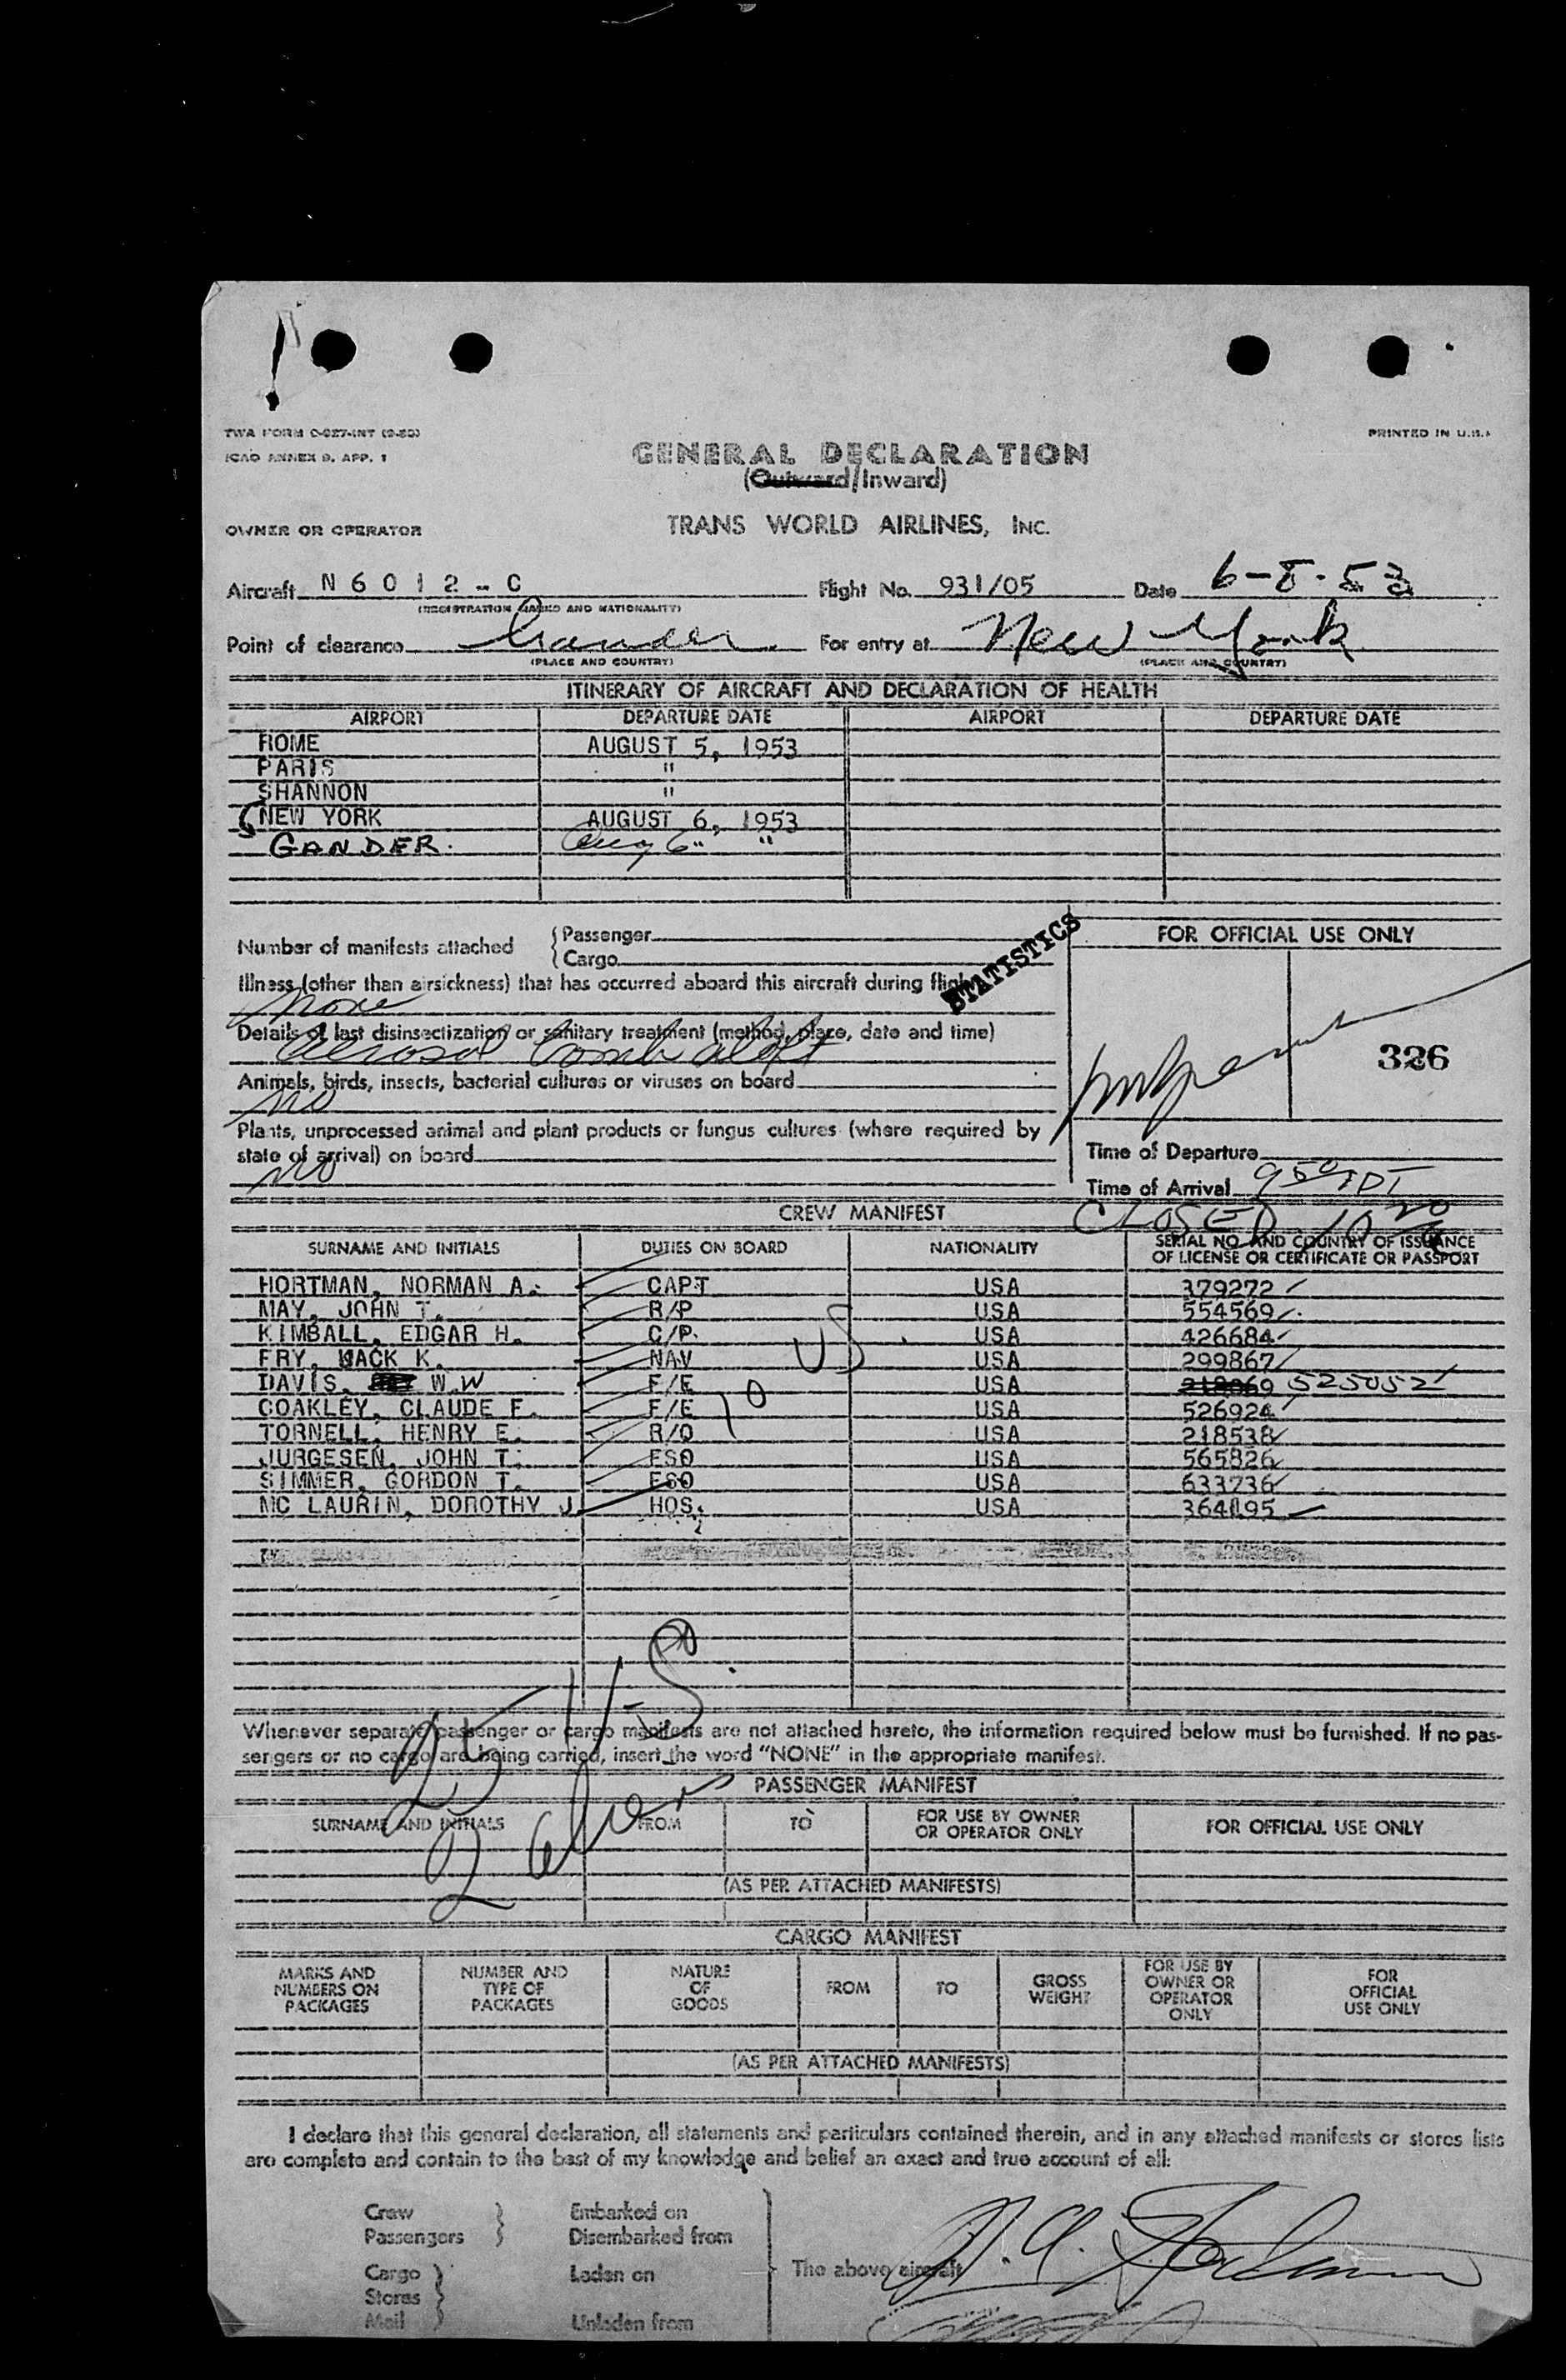 TWA FORM C-027-INT (9-50)
PRINTED IN U.S.A
ICAO ANNEX 9, APP. 1
GENERAL DECLARATION
(Outward/Inward)
OWNER OR OPERATOR TRANS WORLD AIRLINES, INC.
Aircraft N6012-C Flight No. 931/05 Date 6-8-53
(REGISTRATION MARKS AND NATIONALITY)
Point of clearance Gander. For entry at New York
(PLACE AND COUNTRY) (PLACE AND COUNTRY)
ITINERARY OF AIRCRAFT AND DECLARATION OF HEALTH
AIRPORT DEPARTURE DATE AIRPORT DEPARTURE DATE
ROME AUGUST 5, 1953
PARIS "
SHANNON "
NEW YORK AUGUST 6, 1953
GANDER. Aug 6" "
Number of manifests attached { Passenger
{ Cargo
STATISTICS
FOR OFFICIAL USE ONLY
Illness (other than airsickness) that has occurred aboard this aircraft during flight
None
Details of last disinsectization or sanitary treatment (method, place, date and time)
Aerosol bomb aloft
326
Animals, birds, insects, bacterial cultures or viruses on board
No
Plants, unprocessed animal and plant products or fungus cultures (where required by
state of arrival) on board
No
Time of Departure
Time of Arrival 950
CLOSED 10 20
CREW MANIFEST
SURNAME AND INITIALS DUTIES ON BOARD NATIONALITY SERIAL NO. AND COUNTRY OF ISSUANCE OF LICENSE OR CERTIFICATE OR PASSPORT
HORTMAN, NORMAN A. CAPT USA 379272
MAY, JOHN T. R/P USA 554569
KIMBALL, EDGAR H. C/P. USA 426684
FRY, JACK K. NAV USA 299867
DAVIS, W.W F/E USA 218069 525052
COAKLEY, CLAUDE F. F/E USA 526924
TORNELL, HENRY E. R/O USA 218538
JURGESEN, JOHN T. FSO USA 565826
SIMMER, GORDON T. FSO USA 633736
MC LAURIN, DOROTHY J. HOS. USA 364895
10 US
25 US
Whenever separate passenger or cargo manifests are not attached hereto, the information required below must be furnished. If no pas-
sengers or no cargo are being carried, insert the word "NONE" in the appropriate manifest.
2
PASSENGER MANIFEST
SURNAME AND INITIALS FROM TO FOR USE BY OWNER OR OPERATOR ONLY FOR OFFICIAL USE ONLY
(AS PER ATTACHED MANIFESTS)
CARGO MANIFEST
MARKS AND NUMBERS ON PACKAGES NUMBER AND TYPE OF PACKAGES NATURE OF GOODS FROM TO GROSS WEIGHT FOR USE BY OWNER OR OPERATOR ONLY FOR OFFICIAL USE ONLY
(AS PER ATTACHED MANIFESTS)
I declare that this general declaration, all statements and particulars contained therein, and in any attached manifests or stores lists
are complete and contain to the best of my knowledge and belief an exact and true account of all:
Crew } Embarked on
Passengers } Disembarked from
Cargo } Laden on } The above aircraft
Stores
Mail } Unladen from